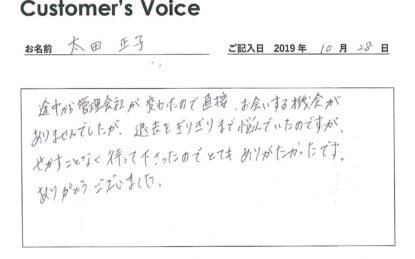 Customer's Voice
お名前 太田 正子 ご記入日 2019 年 10 月 28 日
途中から管理会社が変わったので直接、お会いする機会が
ありませんでしたが、退去をぎりぎりまで悩んでいたのですが、
せかすことなく待って下さったのでとてもありがたかったです。
ありがとうございました。